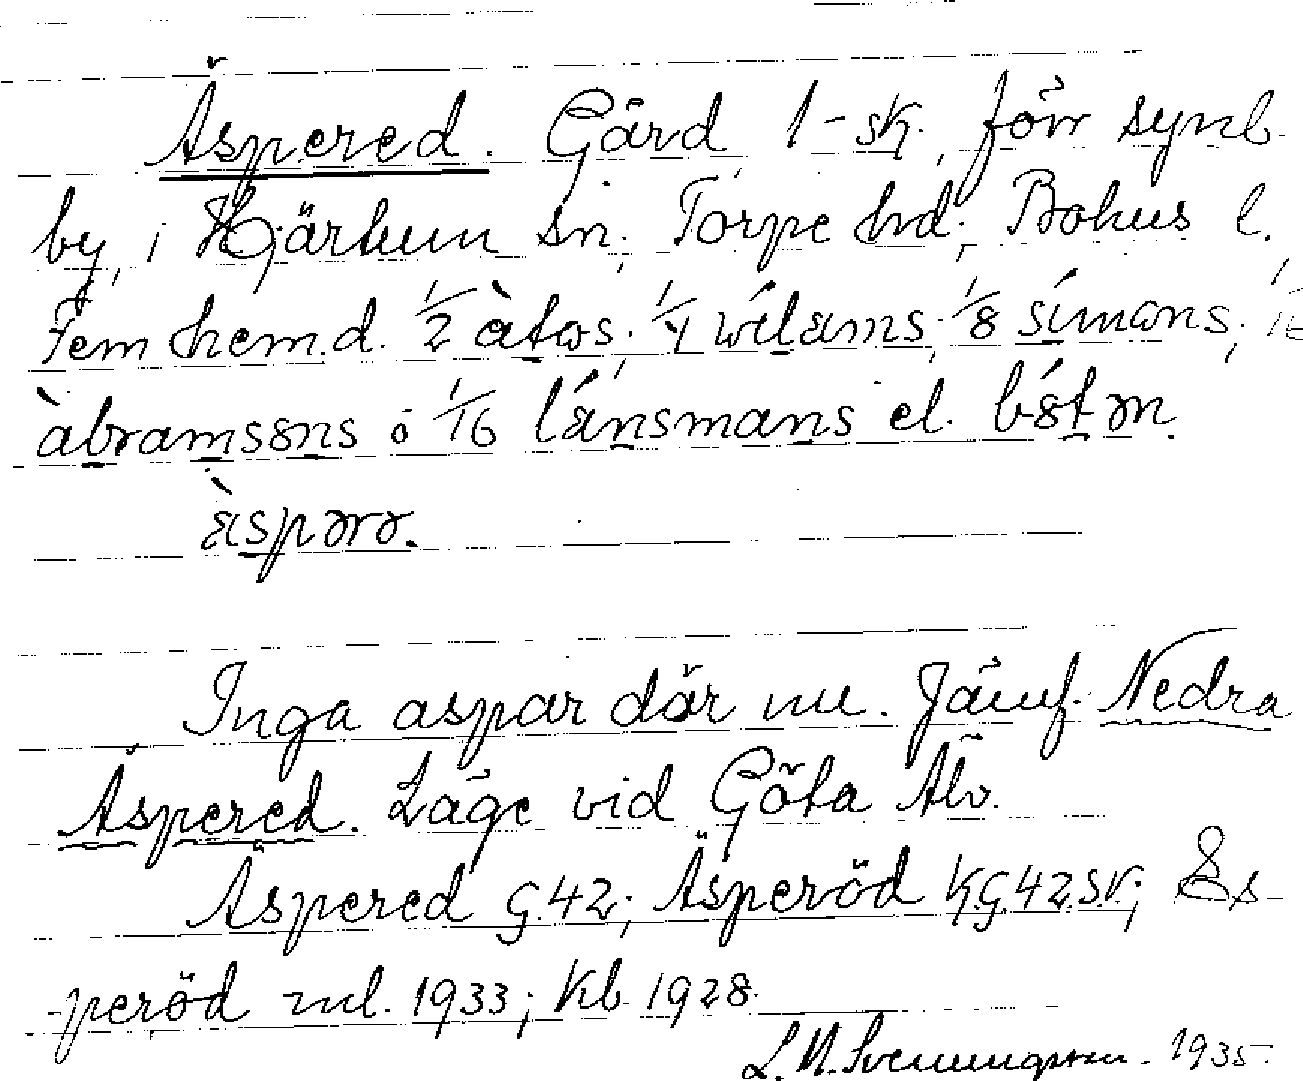 Äspered. Gård 1-sk. förr symb.
by, i Hjärtum sn; Torpe hd; Bohus l.
Fem hem.d. 1/2 àtos; 1/4 wílams; 1/8 símons; 1/16
àbramssons o 1/16 lánsmans el. bóton.
àspərə.
Inga aspar där nu. Jämf. Nedra
Äspered. Läge vid Göta Älv.
Äspered G.42; Äsperöd K.G.42.sv; Es-
peröd ml. 1933; Kb 1928.
L.M. Svenungsson. 1935.